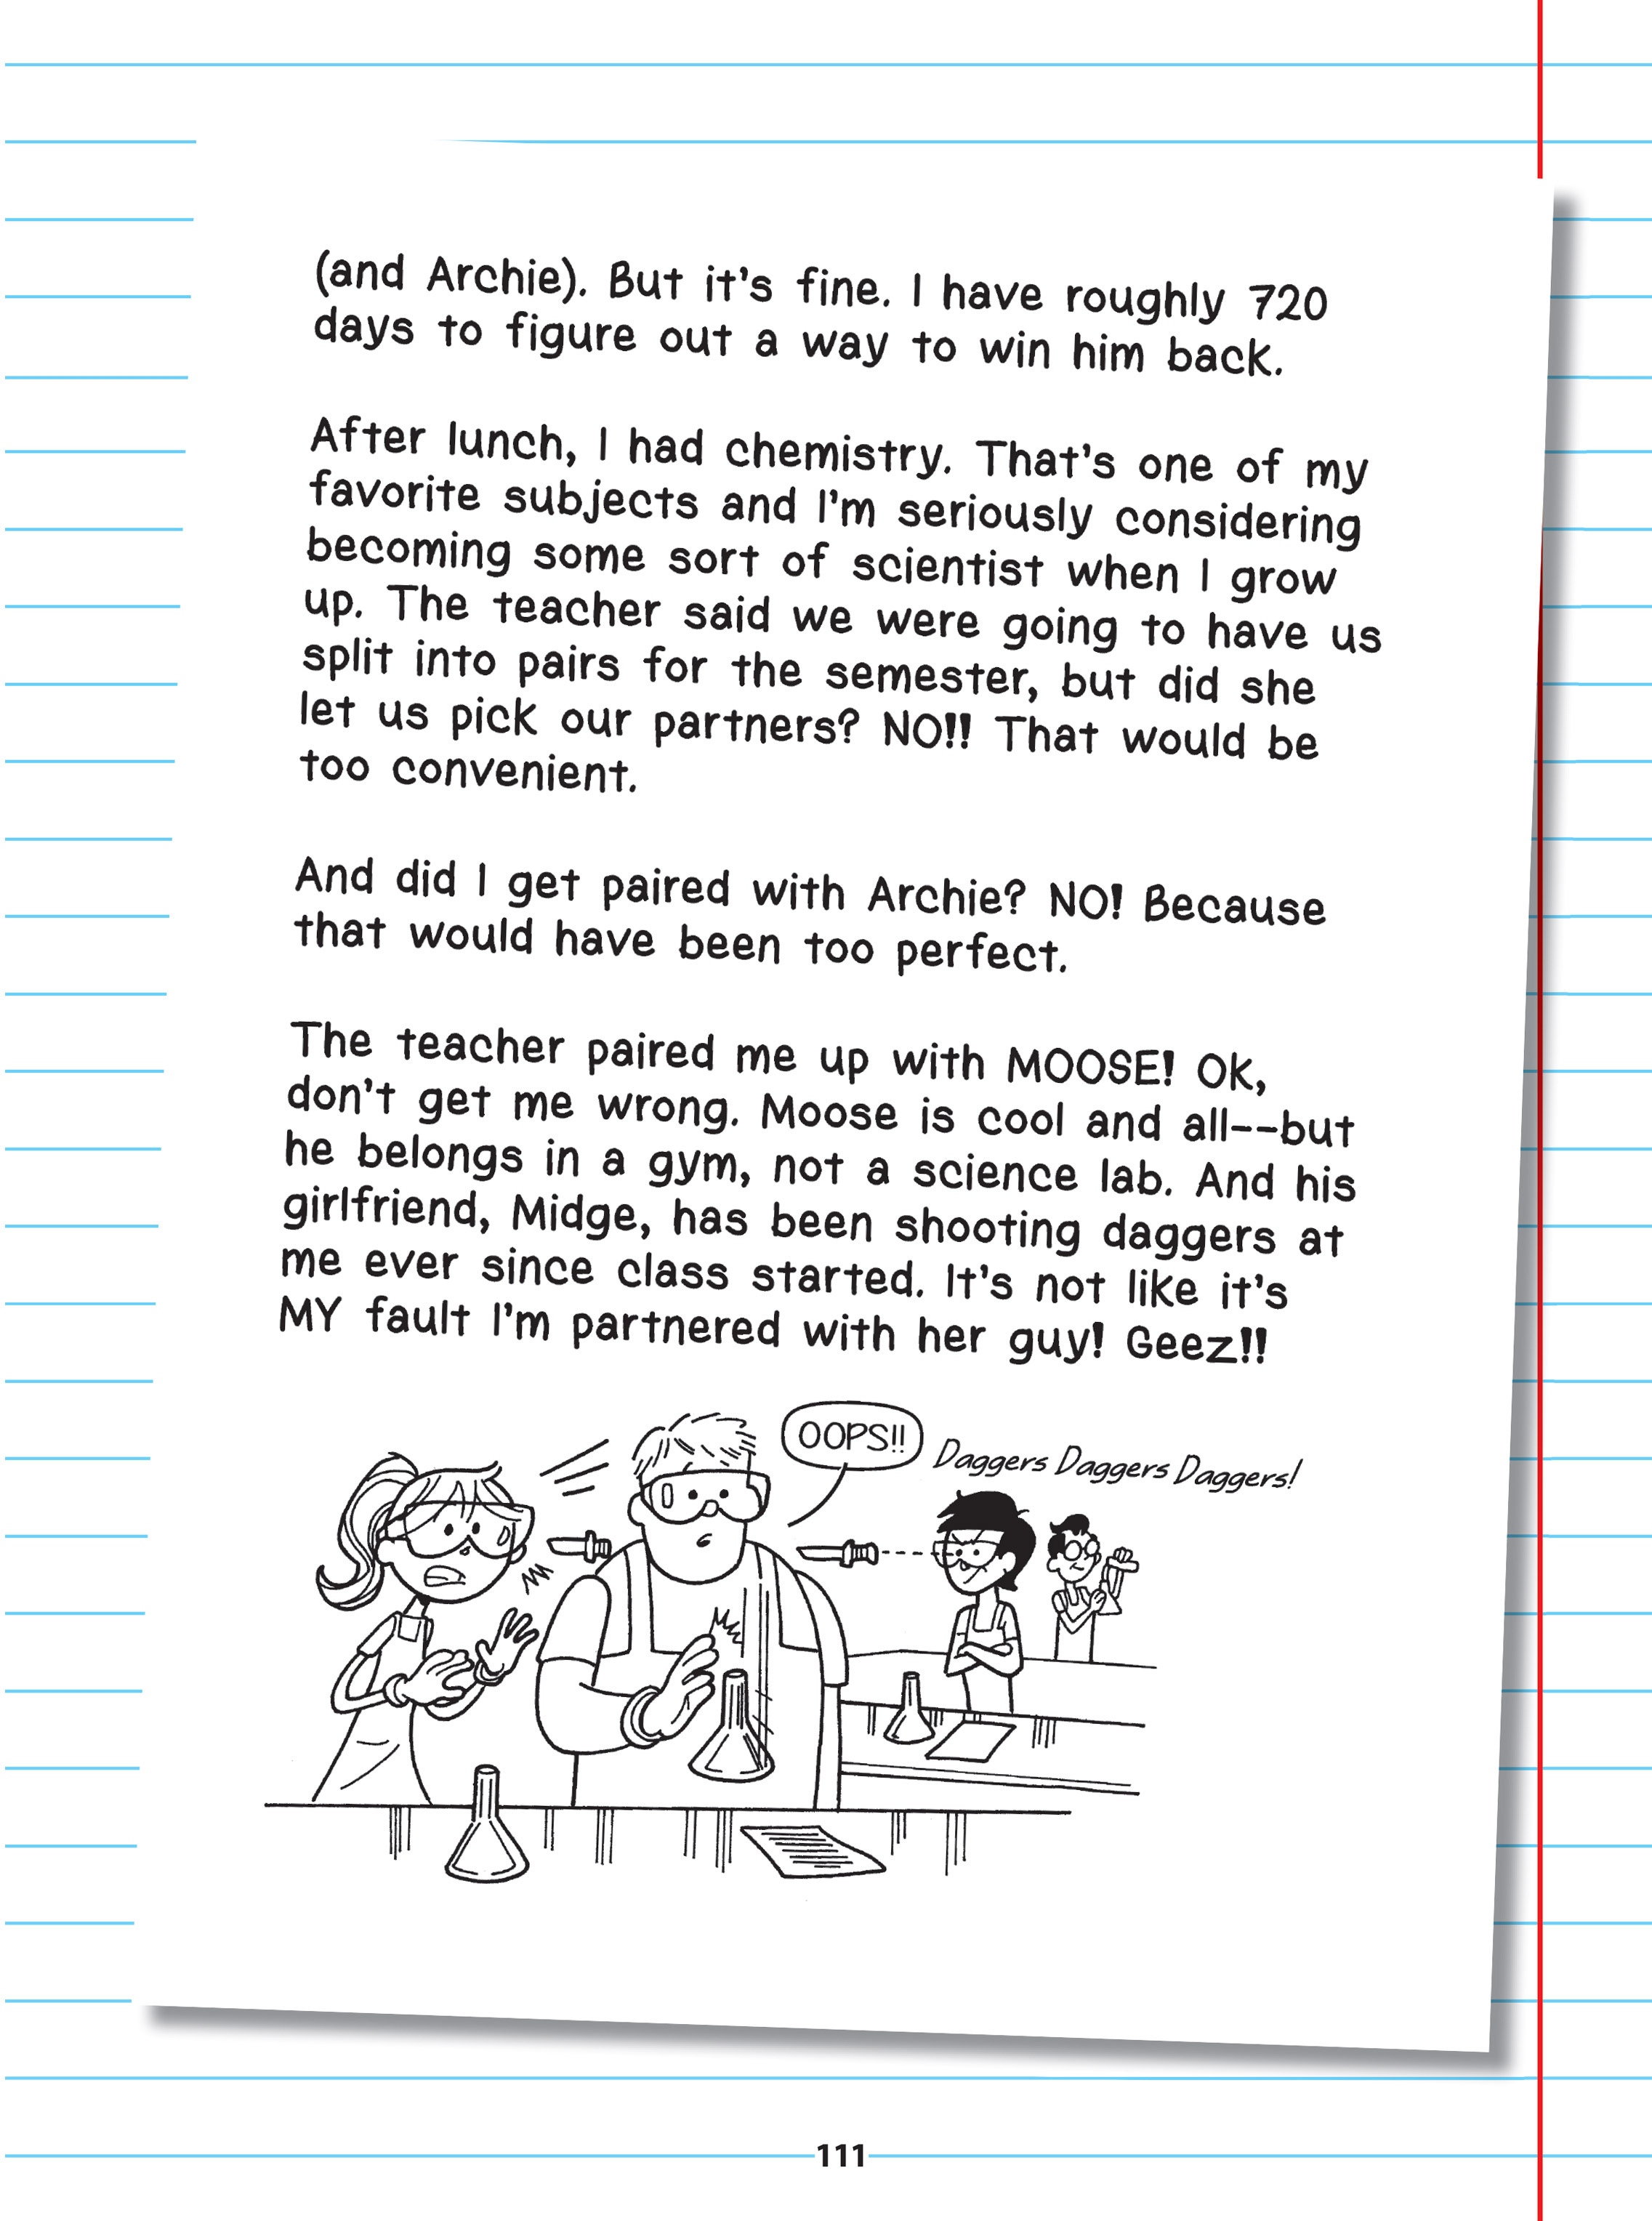 (and Archie). But it's fine. I have roughly 720
days to figure out a way to win him back.
After lunch, I had chemistry. That's one of my
favorite subjects and I'm seriously considering
becoming some sort of scientist when I grow
up. The teacher said we were going to have us
split into pairs for the semester, but did she
let us pick our partners? NO!! That would be
too convenient.
And did I get paired with Archie? NO! Because
that would have been too perfect.
The teacher paired me up with MOOSE! Ok,
don't get me wrong. Moose is cool and all--but
he belongs in a gym, not a science lab. And his
girlfriend, Midge, has been shooting daggers at
me ever since class started. It's not like it's
MY fault I'm partnered with her guy! Geez!!
OOPS!!
Daggers Daggers Daggers!
111